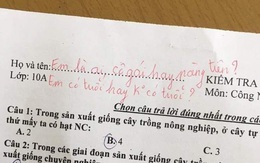 Họ và tên: Em là ai, cô gái hay nàng tiên?
KIỂM TRA
Lớp: 10A Em có tuổi hay k° có tuổi?
Môn: Công N
Chọn câu trả lời đúng nhất trong các
Câu 1: Trong sản xuất giống cây trồng nông nghiệp, ở cây tự
thứ mấy ta có hạt NC:
A. 2 B. 4 C. 3
Câu 2: Trong các giai đoạn sản xuất giống cây trồng
xuất giống chuyên